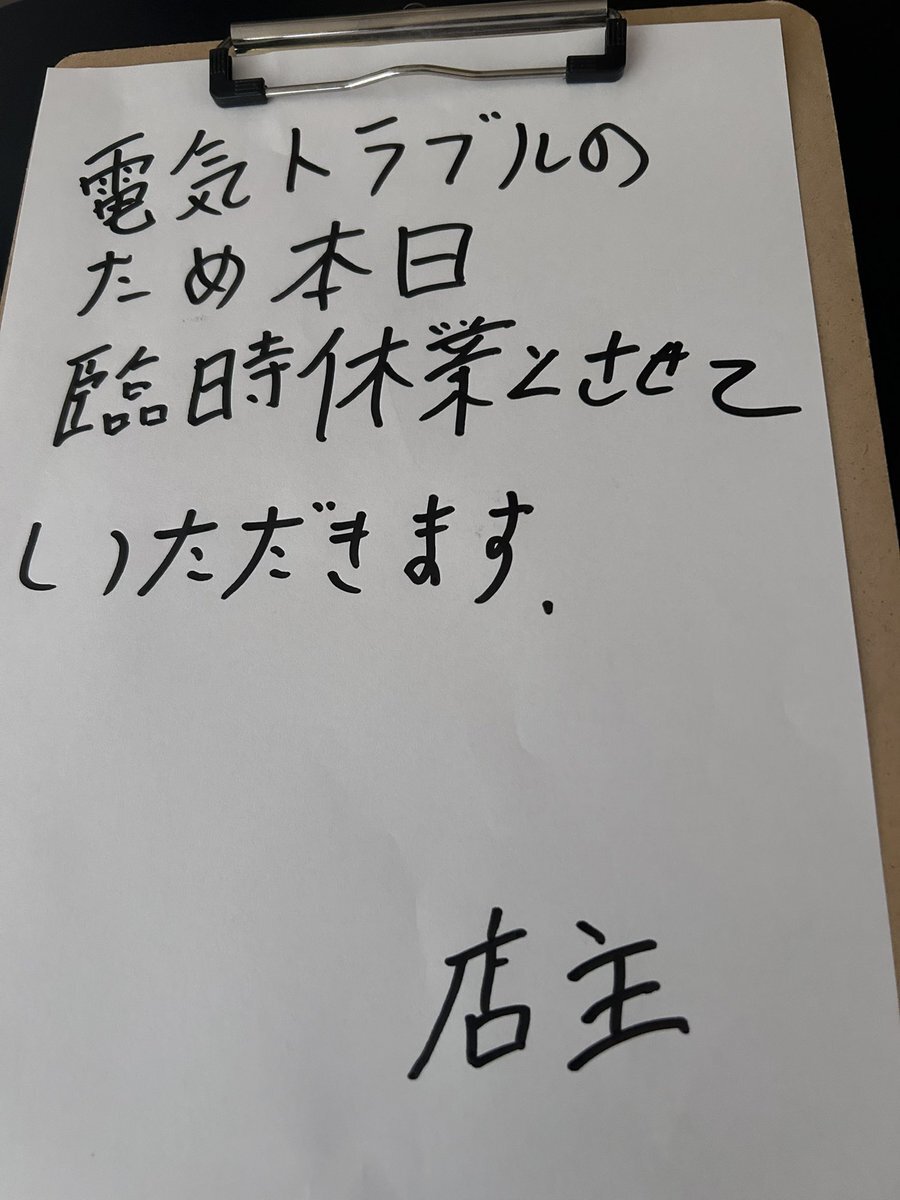 電気トラブルの
ため本日
臨時休業とさせて
いただきます.
店主